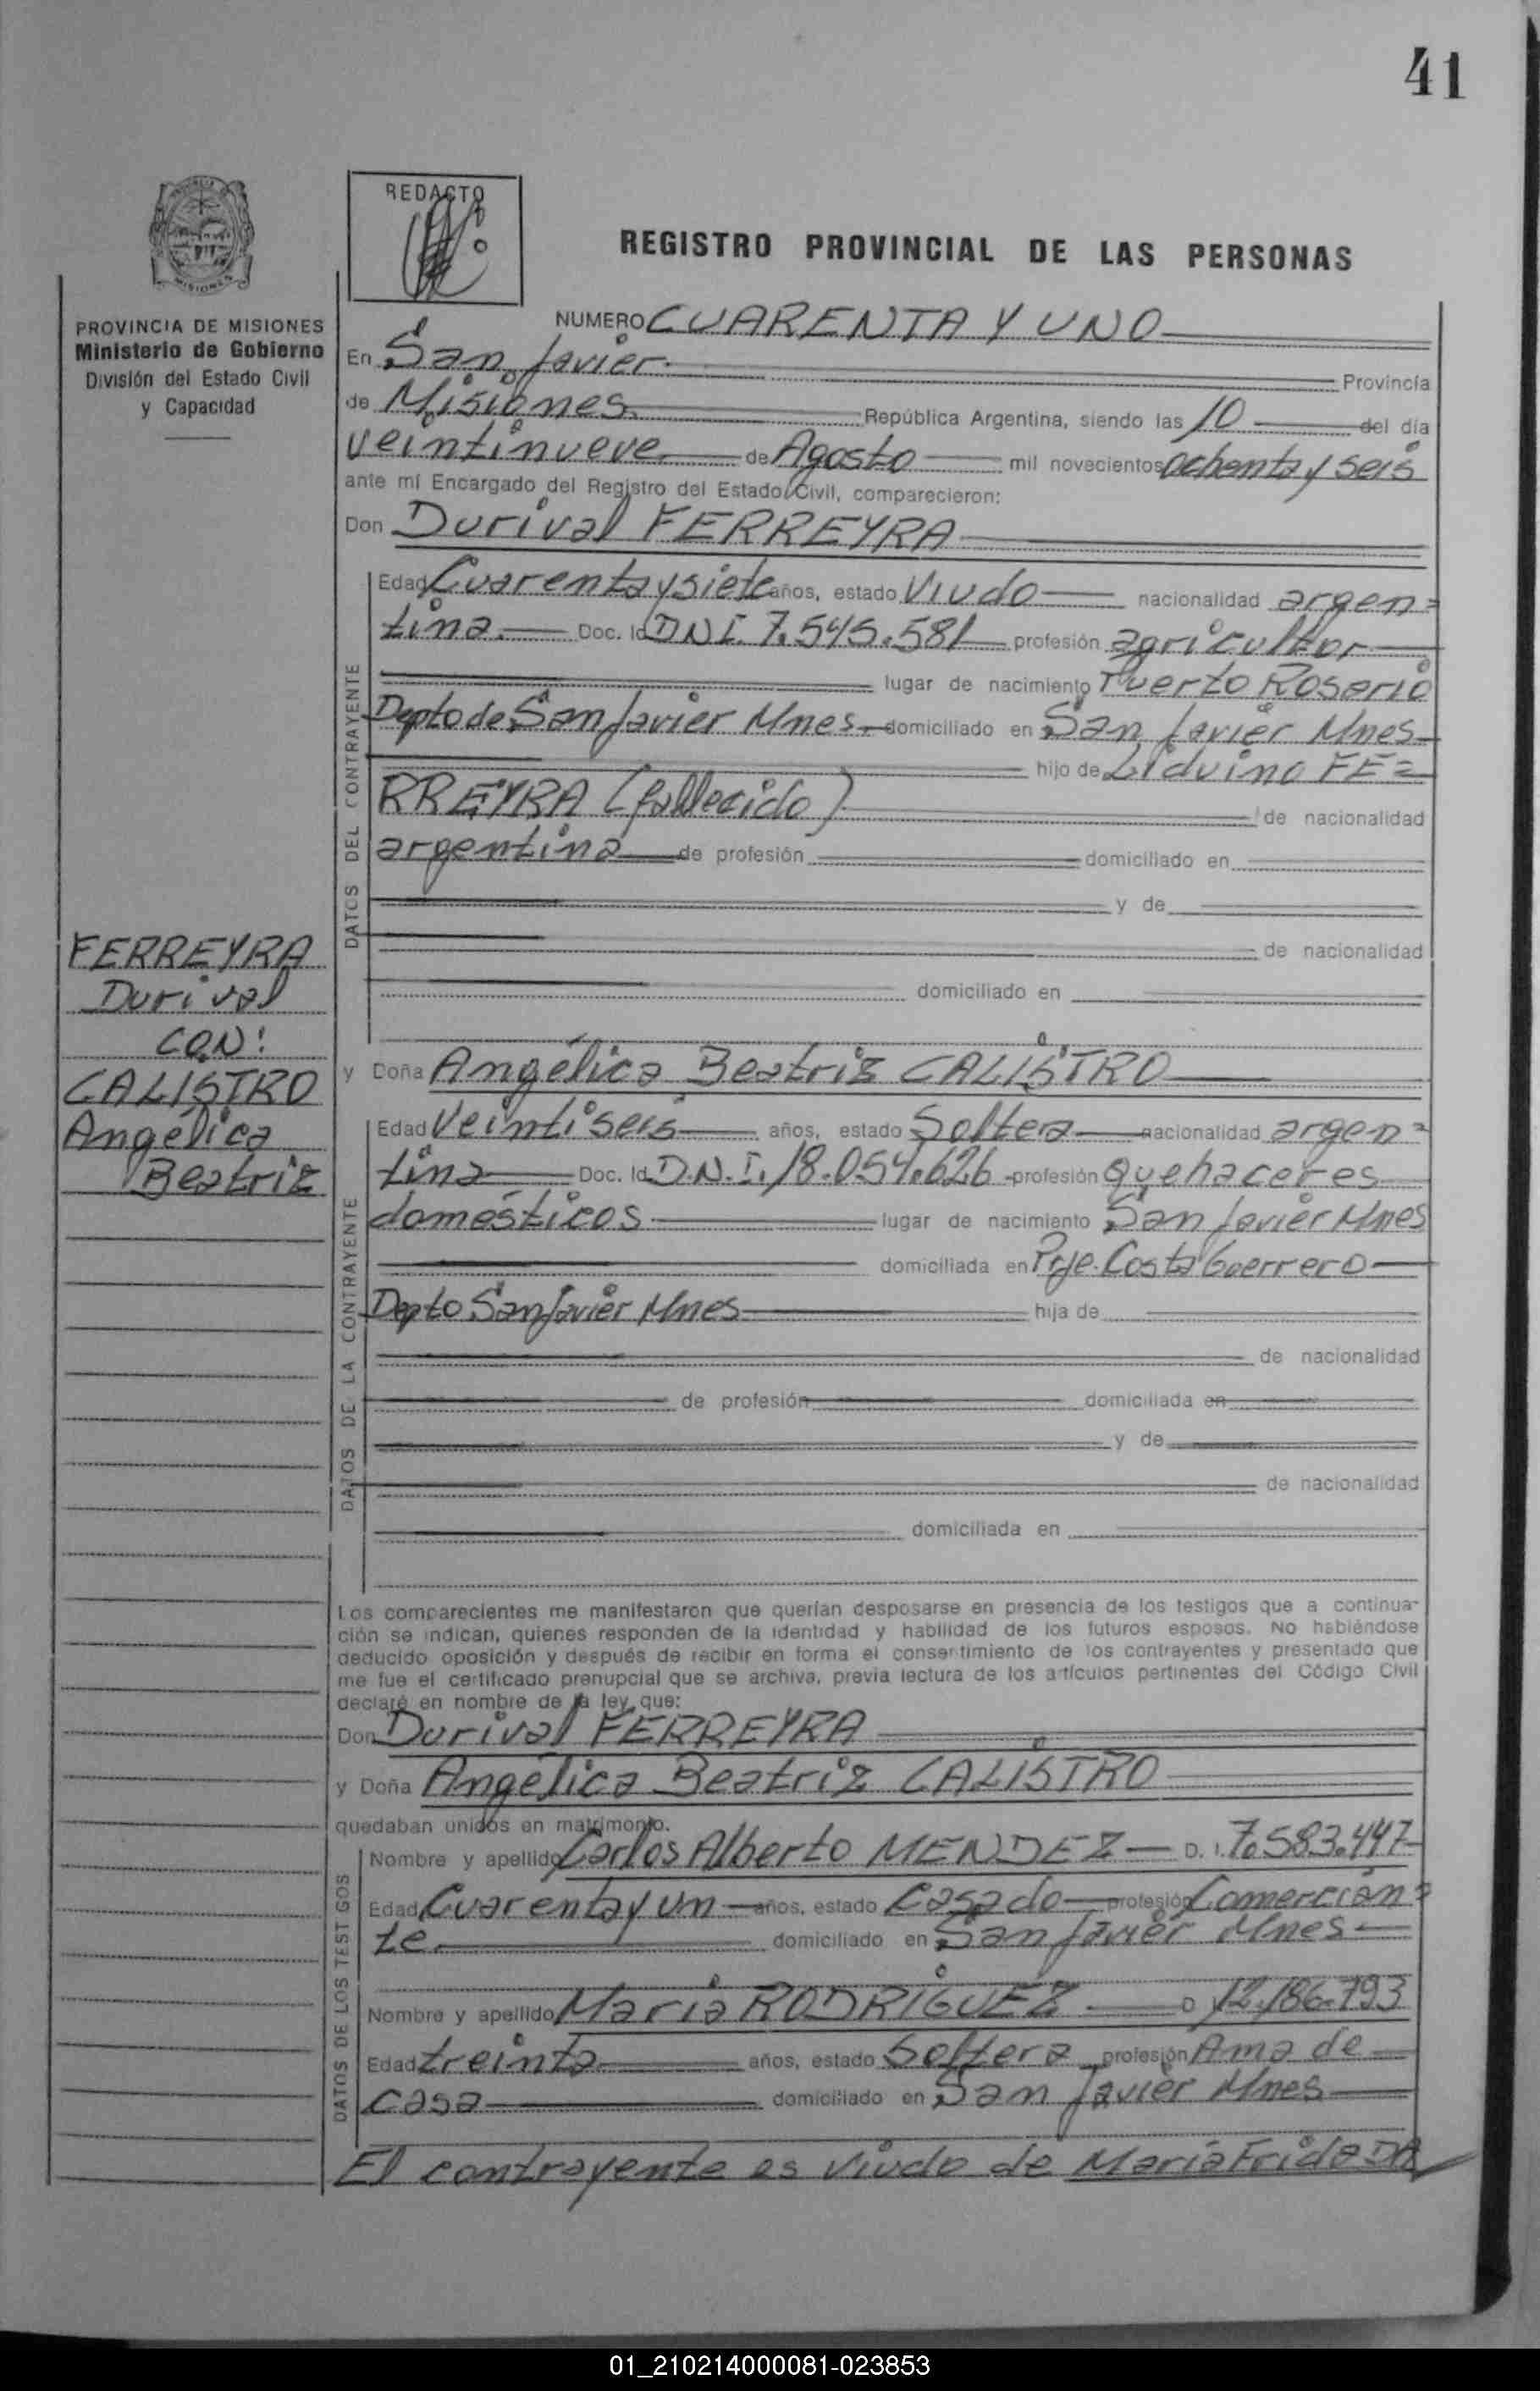 41
REDACTO
REGISTRO PROVINCIAL DE LAS PERSONAS
PROVINCIA DE MISIONES
Ministerio de Gobierno
División del Estado Civil
y Capacidad
NUMERO CUARENTA Y UNO
En San Javier. Provincia
de Misiones República Argentina, siendo las 10 del día
veintinueve de Agosto mil novecientos ochenta y seis
ante mí Encargado del Registro del Estado Civil, comparecieron:
Don Durival FERREYRA
Edad Cuarenta y siete años, estado Viudo nacionalidad argen=
tina. Doc. Id. DNI. 7.545.581 profesión agricultor
lugar de nacimiento Puerto Rosario
Depto de San Javier Mnes. domiciliado en San Javier Mnes
hijo de Liduino FE=
RREYRA (fallecido) de nacionalidad
argentina de profesión domiciliado en
y de
de nacionalidad
domiciliado en
DATOS DEL CONTRAYENTE
FERREYRA
Durival
CON:
CALISTRO
Angélica
Beatriz
y Doña Angélica Beatriz CALISTRO
Edad Veintiseis años, estado Soltera nacionalidad argen=
tina Doc. Id. D.N.I. 18.054.626 profesión Quehaceres
domésticos lugar de nacimiento San Javier Mnes
domiciliada en Prje. Costa Guerrero
Depto San Javier Mnes hija de
de nacionalidad
de profesión domiciliada en
y de
de nacionalidad
domiciliada en
DATOS DE LA CONTRAYENTE
Los comparecientes me manifestaron que querían desposarse en presencia de los testigos que a continua-
ción se indican, quienes responden de la identidad y habilidad de los futuros esposos. No habiéndose
deducido oposición y después de recibir en forma el consentimiento de los contrayentes y presentado que
me fue el certificado prenupcial que se archiva, previa lectura de los artículos pertinentes del Código Civil
declaré en nombre de la ley que:
Don Durival FERREYRA
y Doña Angélica Beatriz CALISTRO
quedaban unidos en matrimonio.
Nombre y apellido Carlos Alberto MENDEZ D. I. 7.583.447
Edad Cuarenta y un años, estado Casado profesión Comercian=
te domiciliado en San Javier Mnes
Nombre y apellido María RODRIGUEZ D. I. 12.186.793
Edad treinta años, estado Soltera profesión Ama de
casa domiciliado en San Javier Mnes
DATOS DE LOS TESTIGOS
El contrayente es viudo de María Frida DA
01_210214000081-023853